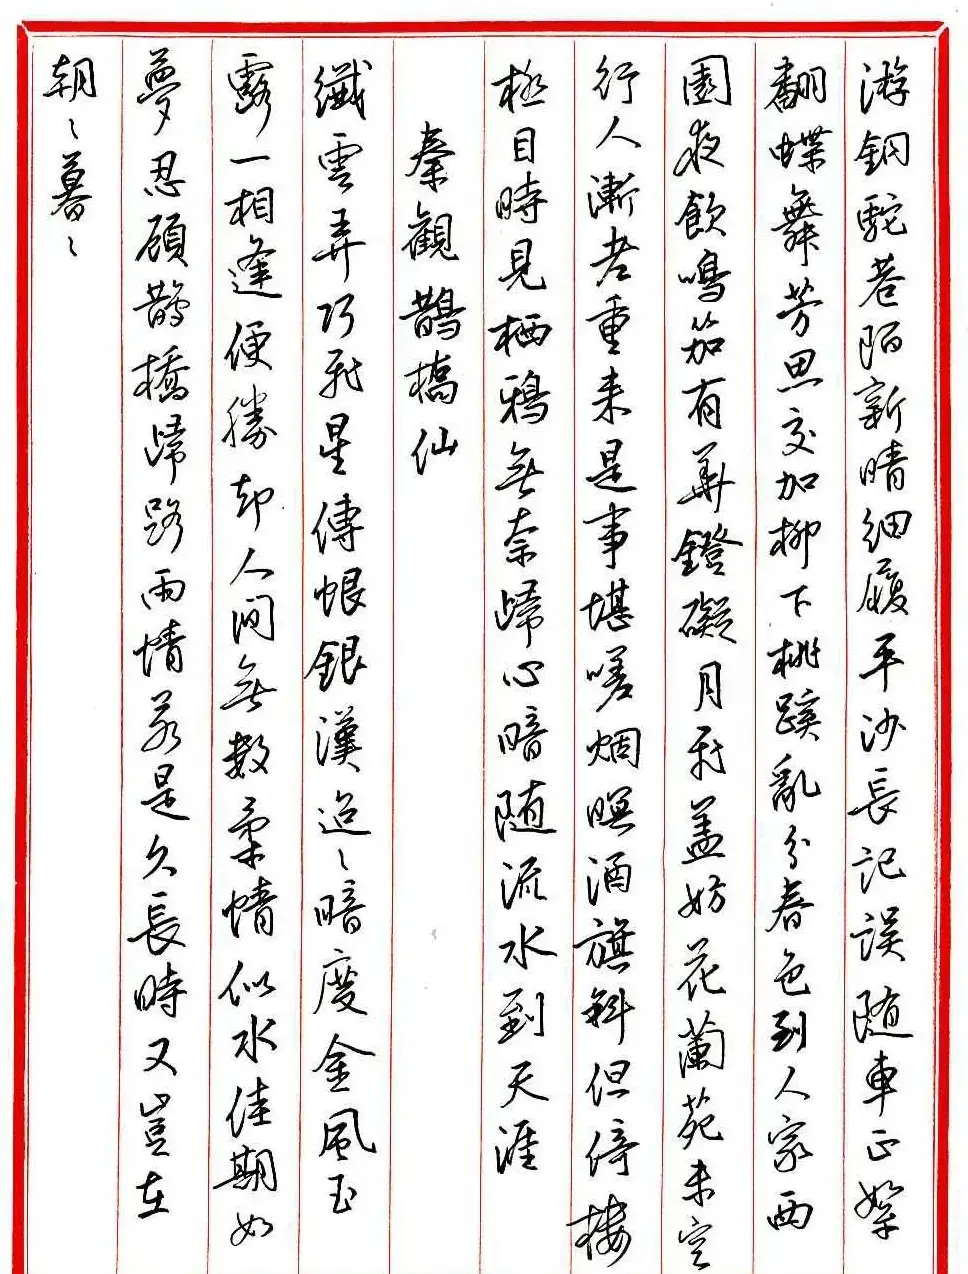 游銅駝巷陌新晴細履平沙長記誤随車正絮
翻蝶舞芳思交加柳下桃蹊亂分春色到人家西
園夜飲鳴笳有華鐙礙月飛蓋妨花蘭苑未空
行人漸老重来是事堪嗟烟暝酒旗斜但倚樓
極目時見栖鴉無奈歸心暗随流水到天涯
秦觀鵲橋仙
纖雲弄巧飛星傳恨銀漢迢〻暗度金風玉
露一相逢便勝却人間無數柔情似水佳期如
夢忍顧鵲橋歸路兩情若是久長時又豈在
朝〻暮〻